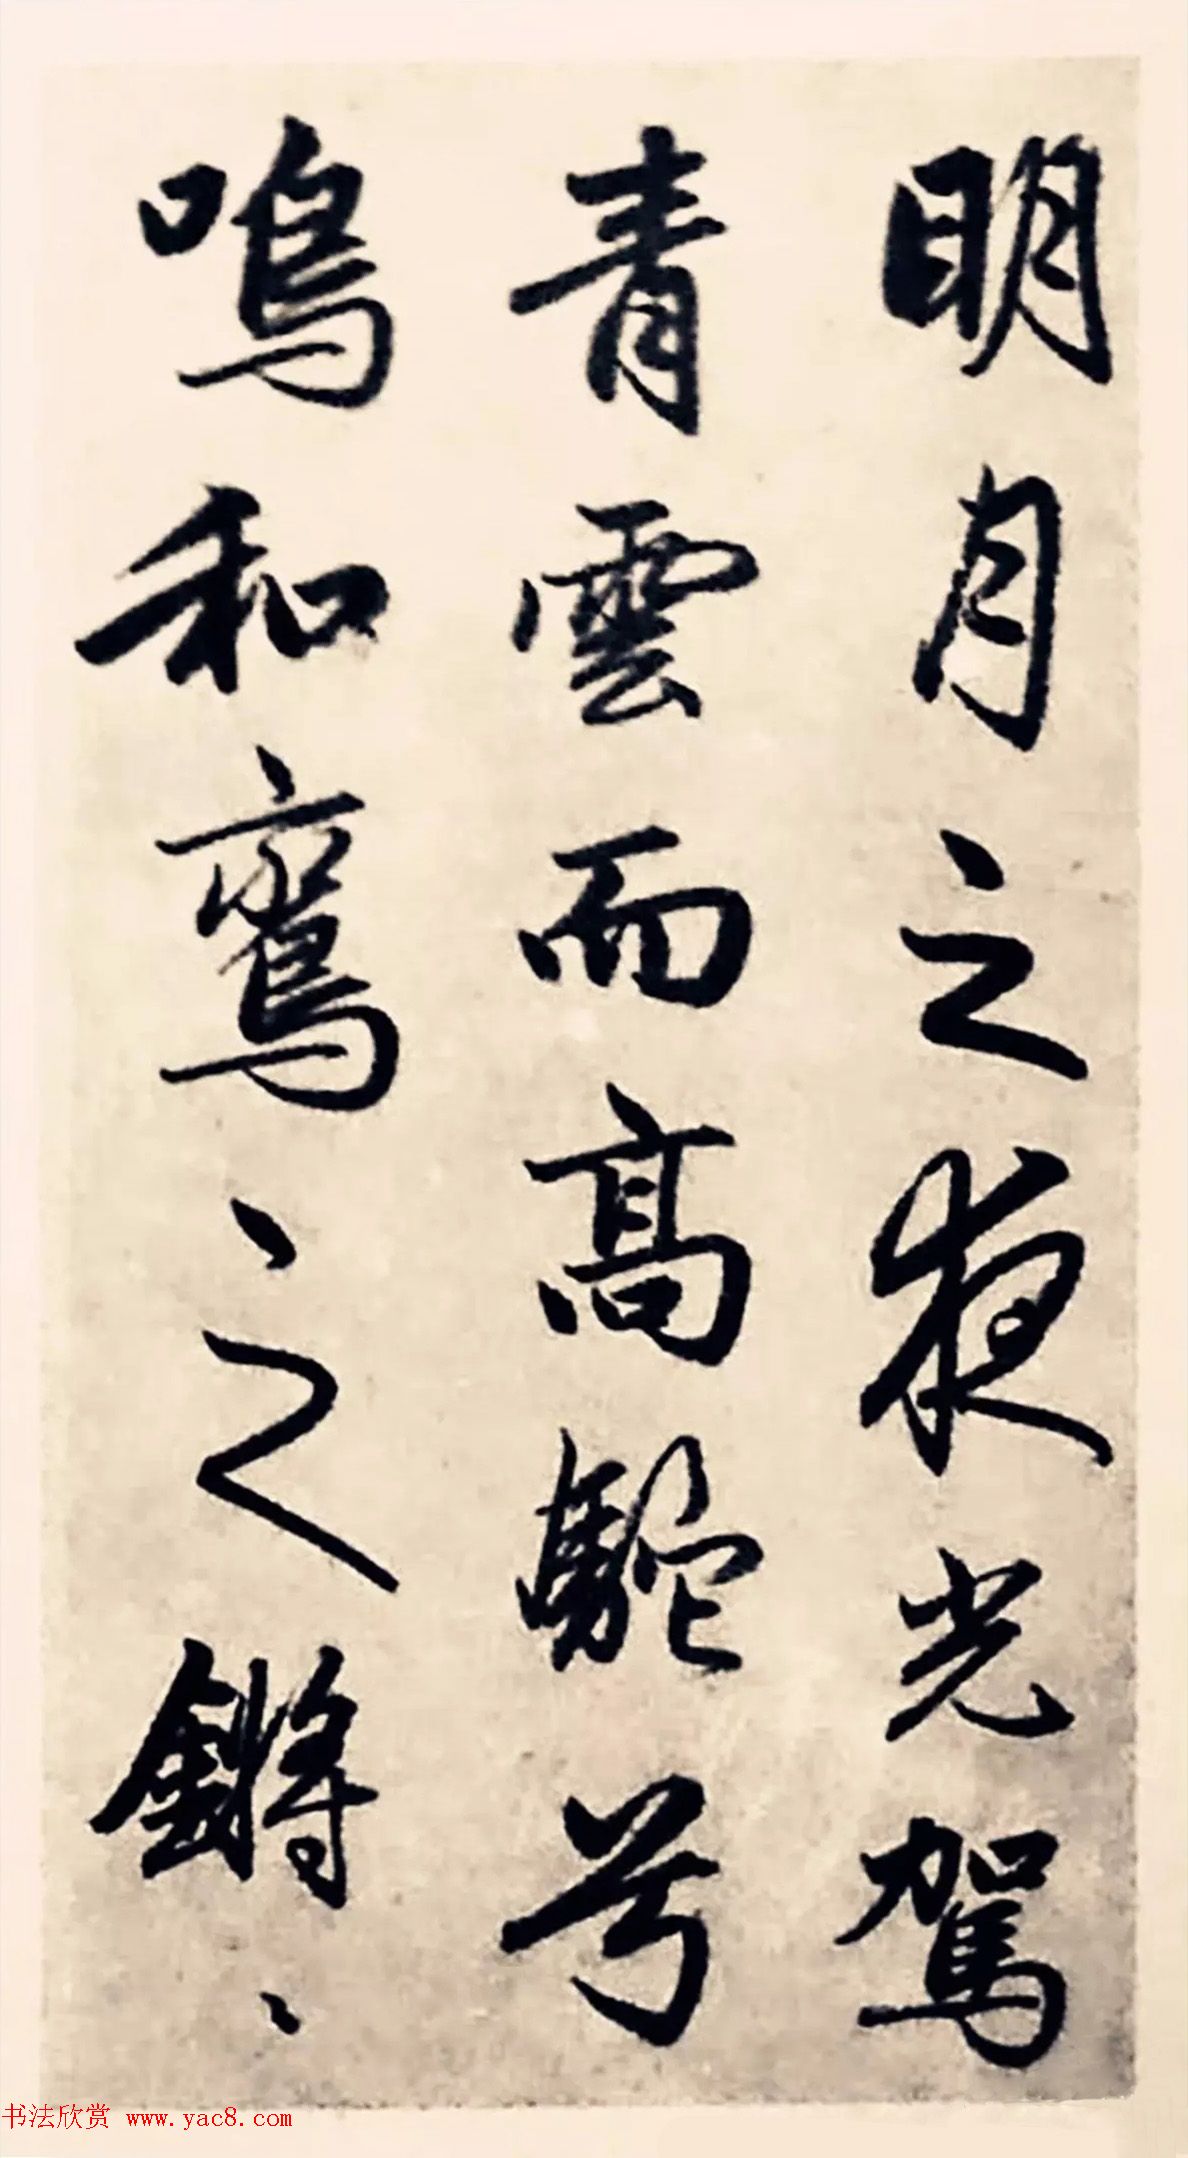 明月之夜光駕
青雲而高駝兮
鳴和鸾之鏘〻
书法欣赏 www.yac8.com